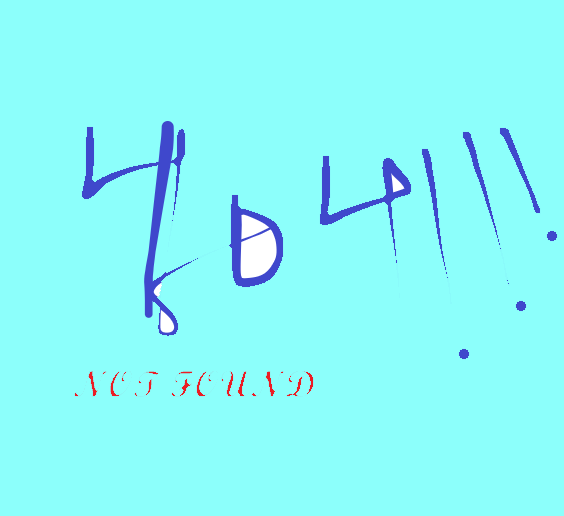 404!!!
NOT FOUND